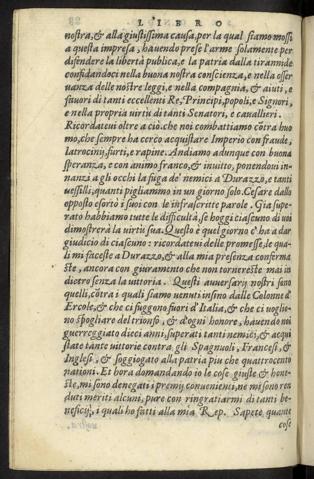 LIBRO
nostra, & alla giustissima causa, per la qual siamo mossi
a questa impresa, hauendo prese l'arme solamente per
difendere la libertà publica, e la patria dalla tirannide
confidandoci nella buona nostra conscienza, e nella osser
uanza delle nostre leggi, e nella compagnia, & aiuti, e
fauori di tanti eccellenti Re, Principi, popoli, e Signori,
e nella propria uirtu di tanti Senatori, e cauallieri.
Ricordateui oltre a ciò che noi combattiamo cõtra huo
mo, che sempre ha cerco acquistare Imperio con fraude,
latrocinij, furti, e rapine. Andiamo adunque con buona
speranza, e con animo franco, & inuitto, ponendoui in-
nanzi a gli occhi la fuga de' nemici a Durazzo, e tanti
uessilli, quanti pigliammo in un giorno solo. Cesare dallo
opposto esortò i suoi con le infrascritte parole. Gia supe-
rato habbiamo tutte le difficultà, se hoggi ciascuno di uoi
dimostrerà la uirtù sua. Questo è quel giorno c'ha a dar
giudicio di ciascuno: ricordateui delle promesse, le qua-
li mi faceste a Durazzo, & alla mia presenza conferma
ste, ancora con giuramento che non tornereste mai in
dietro senza la uittoria. Questi auuersarij nostri sono
quelli, cõtra i quali siamo uenuti insino dalle Colonne d'
Ercole, & che ci fuggono fuori d'Italia, & che ci uoglio-
no spogliare del trionfo, & d'ogni honore, hauendo noi
guerreggiato dieci anni, superati tanti nemici, & acqui
state tante uittorie contra gli Spagnuoli, Francesi, &
Inglesi, & soggiogato alla patria piu che quattrocento
nationi. Et hora domandando io le cose giuste & hone-
ste, mi sono denegati i premij conuenienti, ne mi sono ren
duti meriti alcuni, pure con ringratiarmi di tanti be-
neficij, i quali ho fatti alla mia Rep. Sapete quante
cose